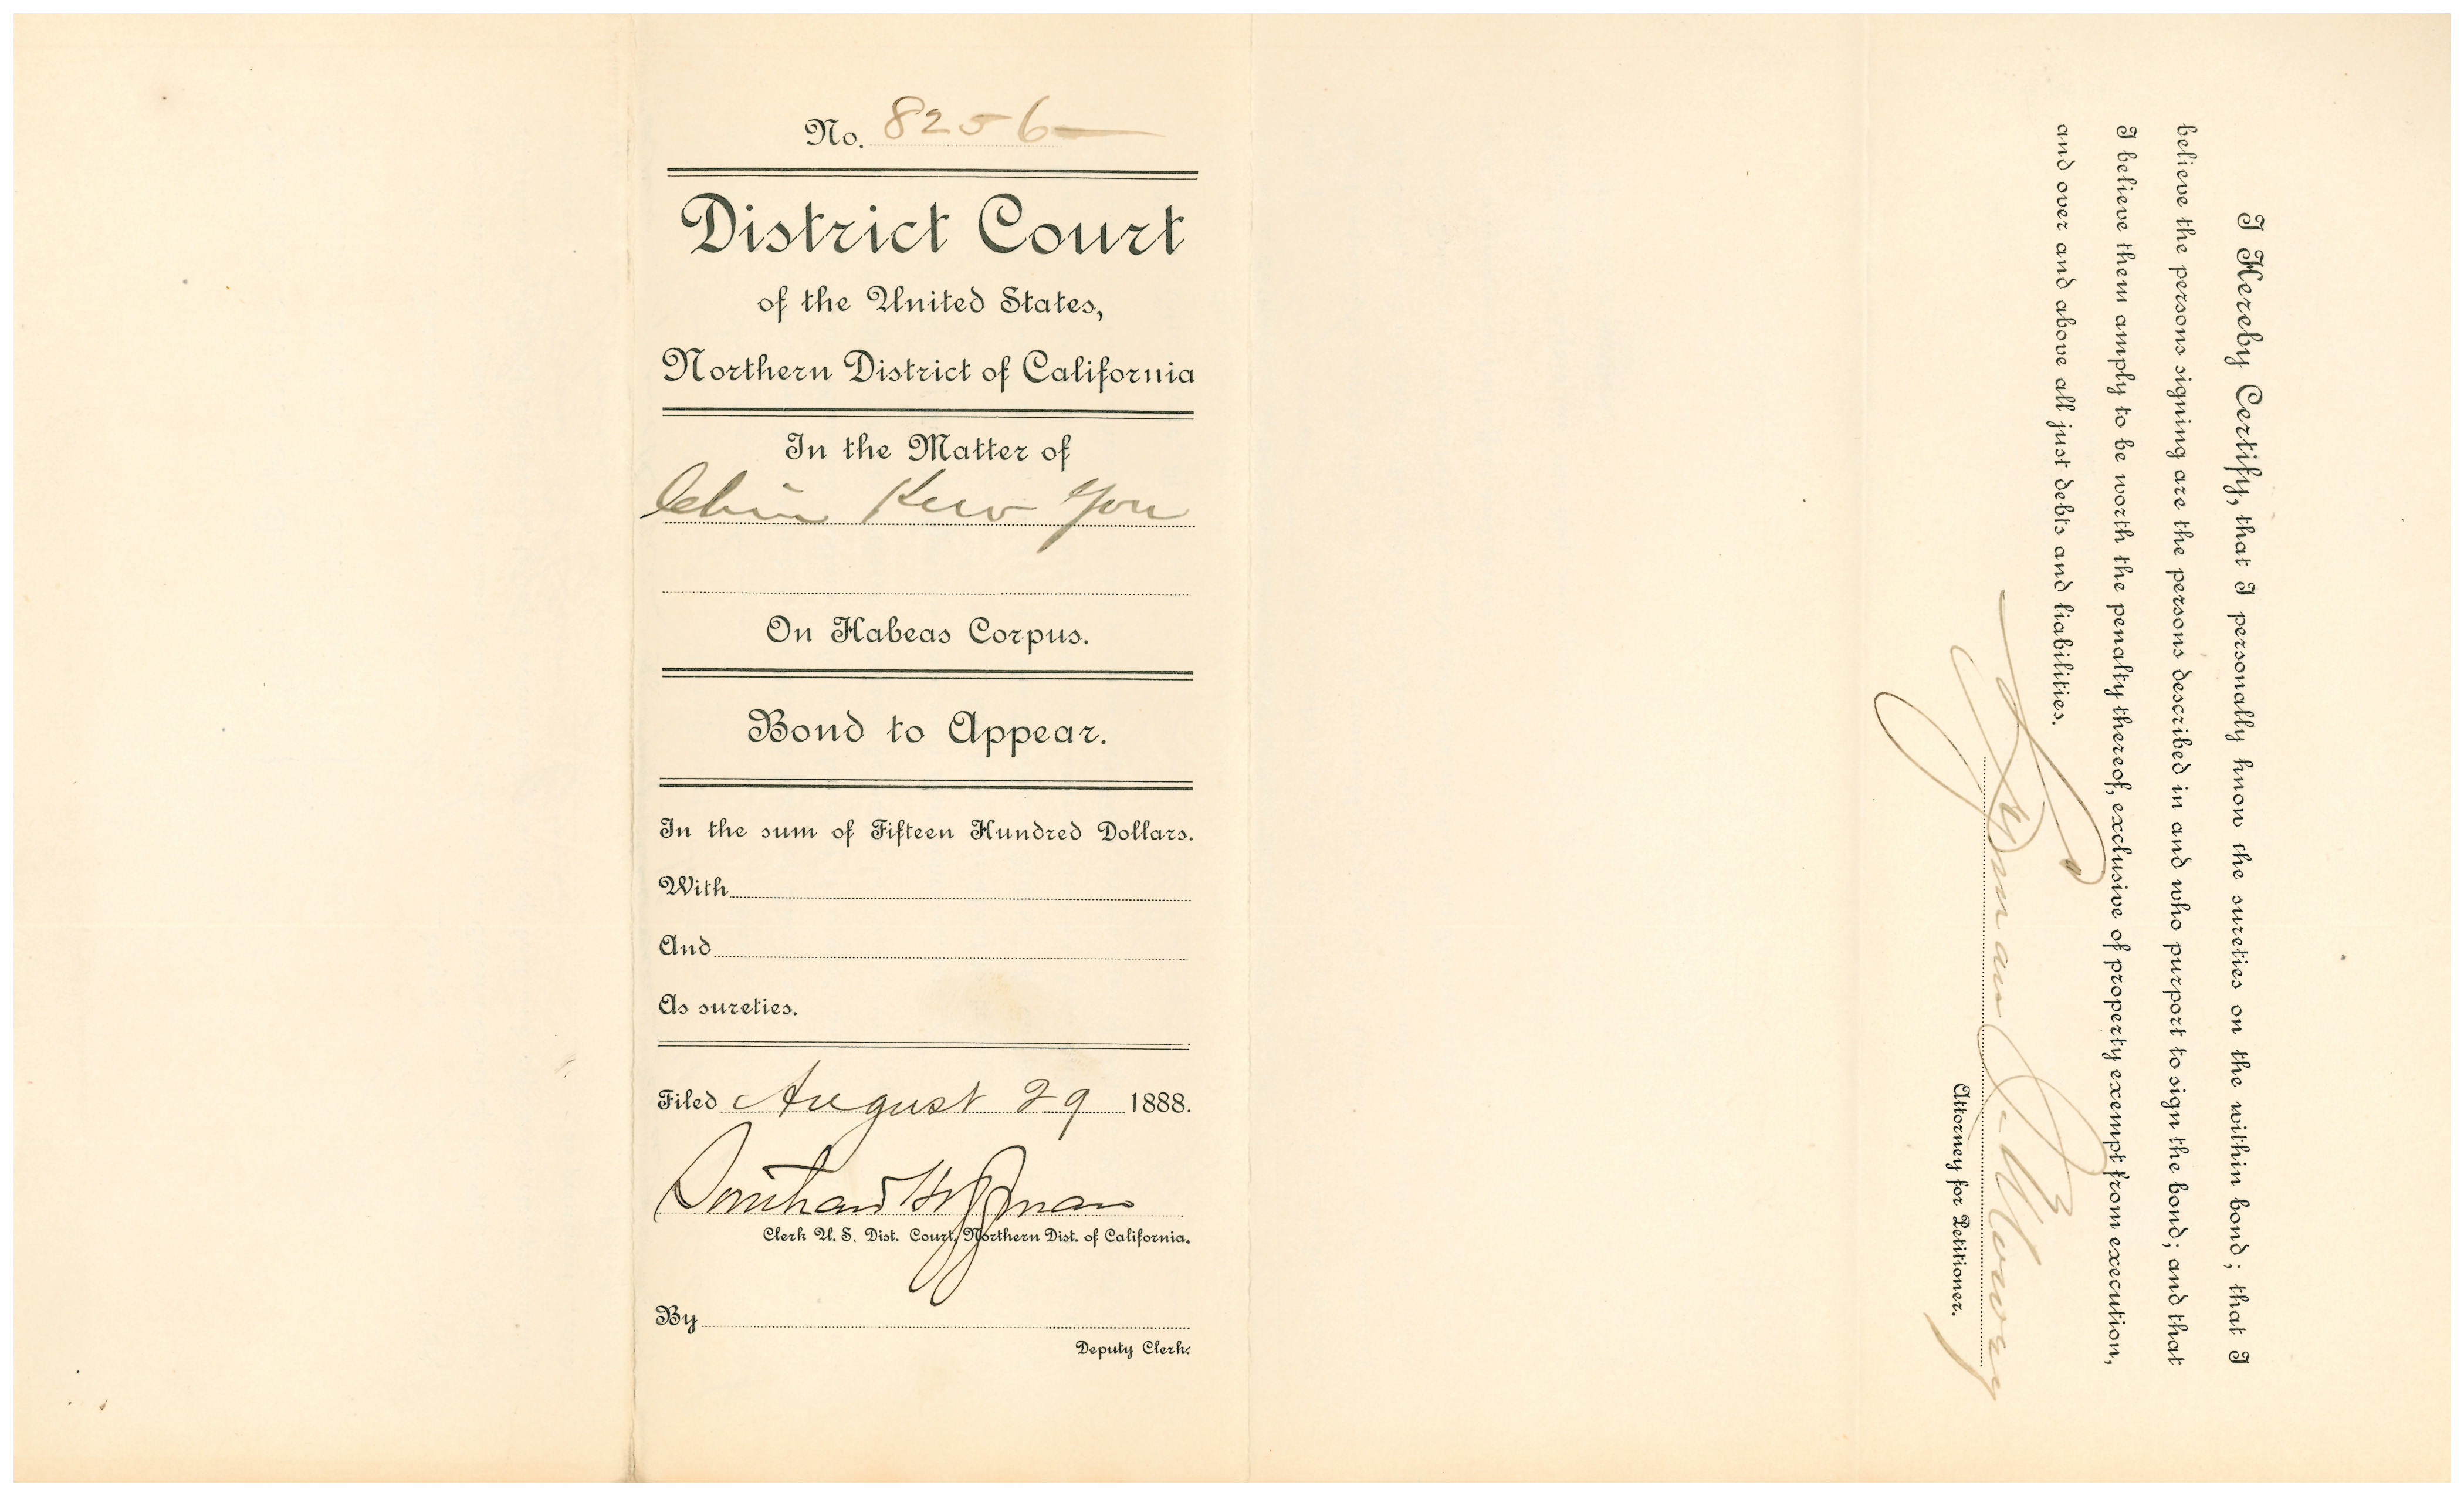 No. 8256
District Court
of the United States,
Northern District of California
In the Matter of
Chin Kew You
On Habeas Corpus.
Bond to Appear.
In the sum of Fifteen Hundred Dollars.
With
And
As sureties.
Filed August 29 1888.
Southard Hoffman
Clerk U. S. Dist. Court, Northern Dist. of California.
By
Deputy Clerk.
I Hereby Certify, that I personally know the sureties on the within bond; that I
believe the persons signing are the persons described in and who purport to sign the bond; and that
I believe them amply to be worth the penalty thereof, exclusive of property exempt from execution,
and over and above all just debts and liabilities.
Lyman I. Mowry
Attorney for Petitioner.